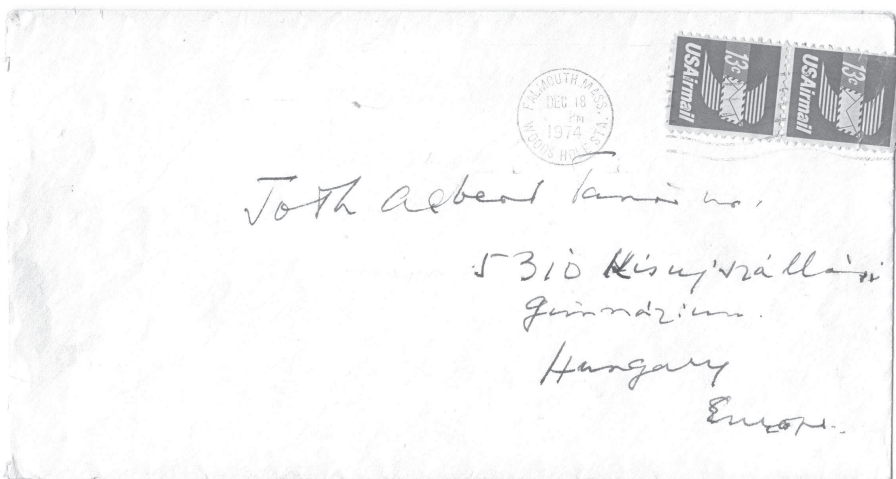 FALMOUTH, MASS.
DEC 18
PM
1974
WOODS HOLE STA.
13c USAirmail
13c USAirmail
Toth Albert Tanár ur.
5310 Kisujszállási
gimnázium.
Hungary
Europe.